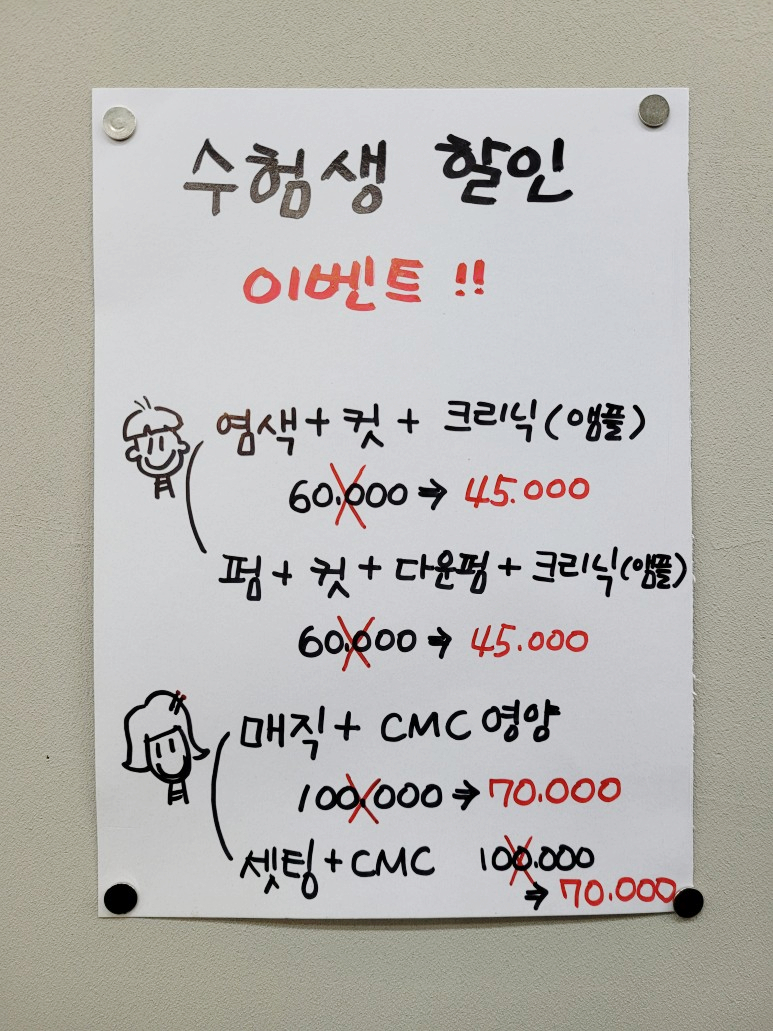 수험생 할인
이벤트 !!
염색 + 컷 + 크리닉(앰플)
60.000 → 45.000
펌 + 컷 + 다운펌 + 크리닉(앰플)
60.000 → 45.000
매직 + CMC 영양
100.000 → 70.000
셋팅 + CMC 100.000
→ 70.000